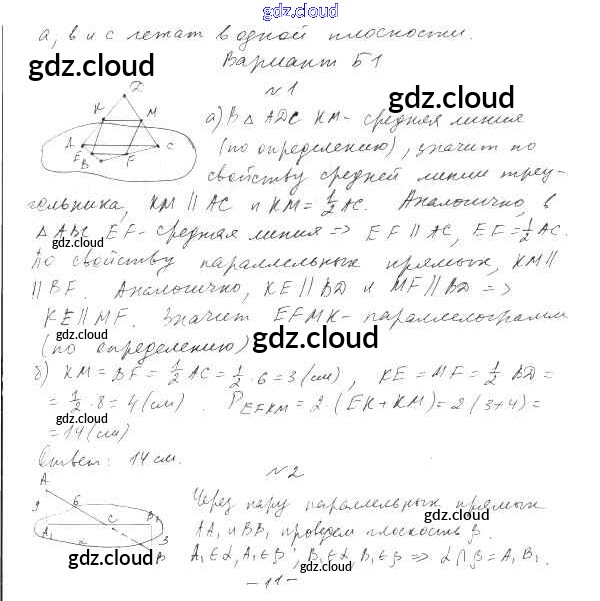 gdz.cloud
а, в и с лежат в одной плоскости.
Вариант Б1
gdz.cloud
№1
gdz.cloud
D
K
M
A
C
E
F
B
а) В △ ADC KM - средняя линия
(по определению), значит по
gdz.cloud
свойству средней линии треу-
гольника, KM || AC и KM = 1/2 AC. Аналогично, в
△ ABC EF - средняя линия => EF || AC, EF = 1/2 AC.
gdz.cloud
По свойству параллельных прямых, KM ||
|| BF. Аналогично, KE || BD и MF || BD =>
KE || MF. Значит EFMK - параллелограмм
gdz.cloud
(по определению)
gdz.cloud
б) KM = BF = 1/2 AC = 1/2 · 6 = 3 (см), KE = MF = 1/2 BD =
= 1/2 · 8 = 4 (см). P EFKM = 2 · (EK + KM) = 2 (3+4) =
= 14 (см)
gdz.cloud
Ответ: 14 см.
№2
A
6
C
A1
B1
3
α
B
Через пару параллельных прямых
AA1 и BB1 проведем плоскость β.
gdz.cloud
A1 ∈ α, A1 ∈ β, B1 ∈ α, B1 ∈ β => α ∩ β = A1 B1.
gdz.cloud
- 11 -
gdz.cloud